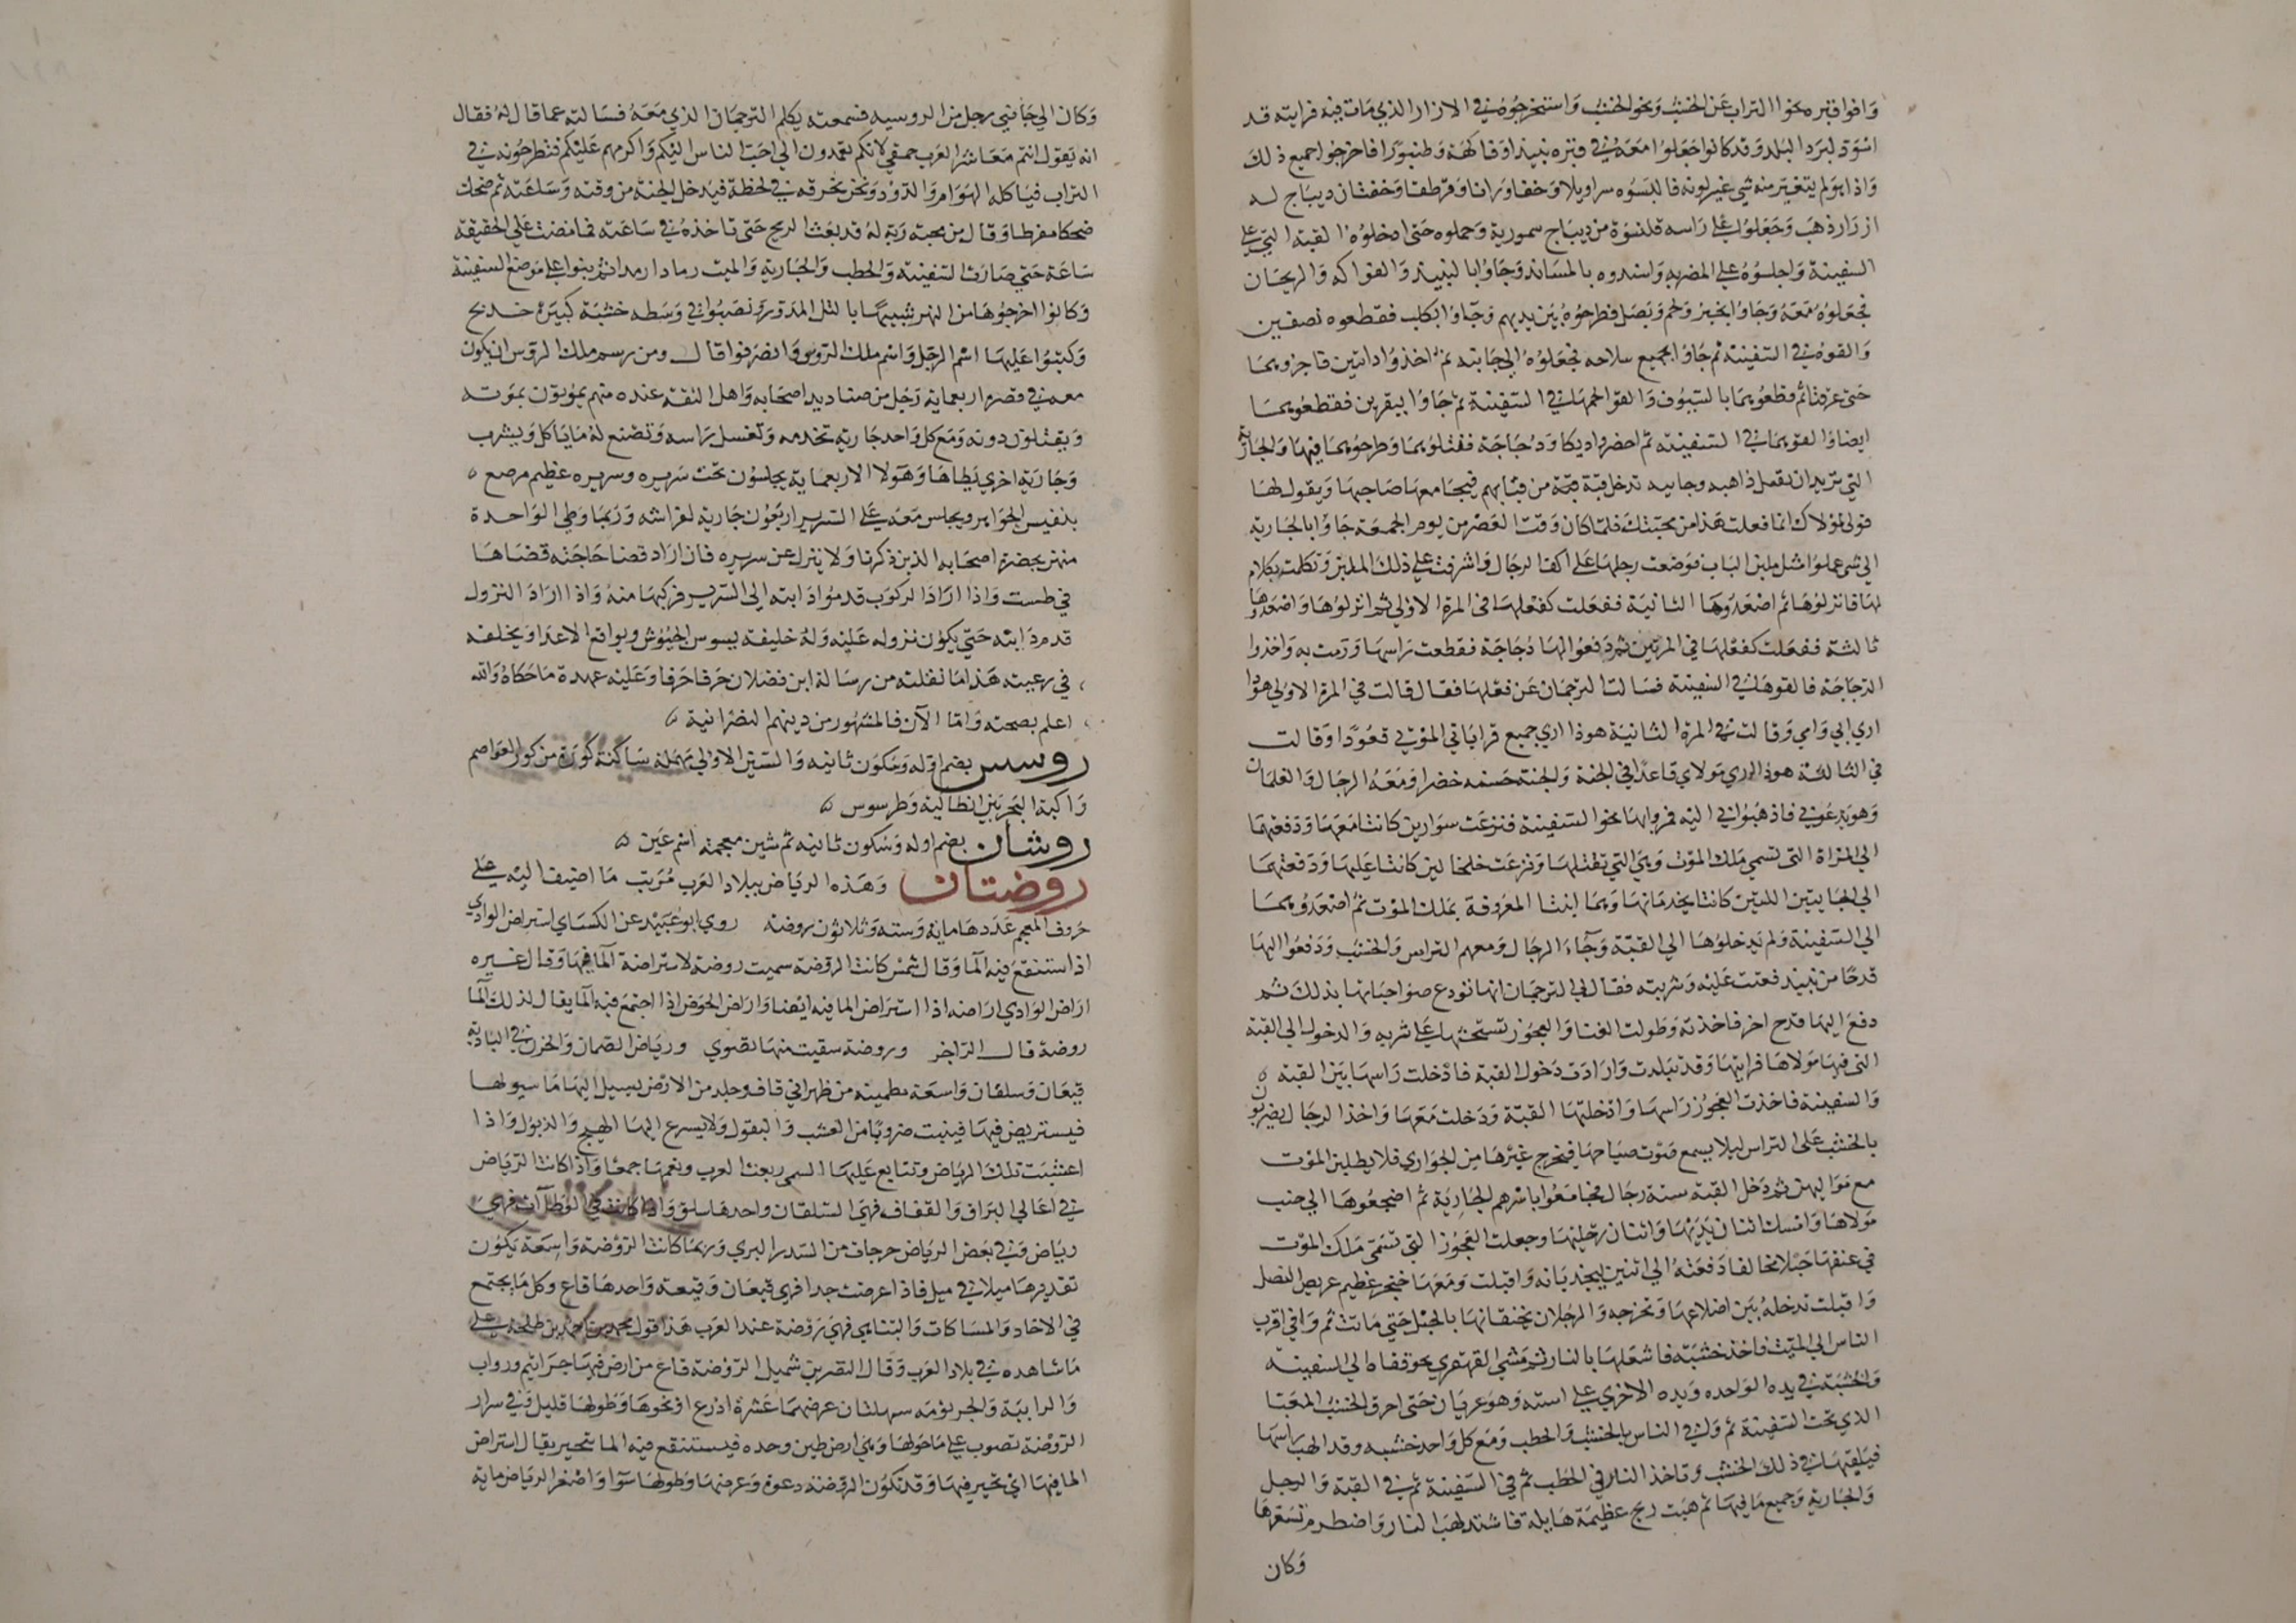 وافوا قبره نحوا التراب عن الخشب ونحوا الخشب واستخرجوه في الازار الذي مات فيه فرايته قد
اسود لبرد البلد وقد كانوا جعلوا معه في قبره نبيذا وفاكهة وطنبورا فاخرجوا جميع ذلك
واذا هو لم يتغير منه شي غير لونه فالبسوه سراويلا وخفا ورانا وقرطقا وخفتان ديباج له
ازرار ذهب وجعلوا على راسه قلنسوة من ديباج سمورية وحملوه حتى ادخلوه القبة التي على
السفينة واجلسوه على المضربه واسندوه بالمساند وجاوا بالنبيذ والفواكه والريحان
فجعلوه معه وجاوا بخبز ولحم وبصل فطرحوه بين يديه وجاوا بكلب فقطعوه نصفين
والقوه في السفينة ثم جاوا بجميع سلاحه فجعلوه الى جانبه ثم اخذوا دابتين فاجروهما
حتى عرقتا ثم قطعوهما بالسيوف والقوا لحمهما في السفينة ثم جاوا ببقرتين فقطعوهما
ايضا والقوهما في السفينة ثم احضروا ديكا ودجاجة فقتلوهما وطرحوهما فيها والجارية
التي تريد ان تقتل ذاهبه وجاييه تدخل قبة قبة من قبابهم فيجامعها صاحبها ويقول لها
قولي لمولاك انما فعلت هذا من محبتك فلما كان وقت العصر من يوم الجمعة جاوا بالجارية
الى شي عملوا مثل ملبن الباب فوضعت رجلها على اكف الرجال واشرفت على ذلك الملبن وتكلمت بكلام
لها فانزلوها ثم اصعدوها الثانية ففعلت كفعلها في المرة الاولى ثم انزلوها واصعدوها
ثالثة ففعلت كفعلها في المرتين ثم دفعوا لها دجاجة فقطعت راسها ورمت به واخذوا
الدجاجة فالقوها في السفينة فسالت الترجمان عن فعلها فقال قالت في المرة الاولى هوذا
ارى ابي وامي وقالت في المرة الثانية هوذا ارى جميع قراباتي الموتى قعودا وقالت
في الثالثة هوذا ارى مولاي قاعدا في الجنة والجنة حسنه خضرا ومعه الرجال والغلمان
وهو يدعوني فاذهبوا بي اليه فمروا بها نحوا السفينة فنزعت سوارين كانتا معها ودفعتهما
الى المراة التي تسمى ملك الموت وهي التي تقتلها ونزعت خلخالين كانتا عليها ودفعتهما
الى الجاريتين اللتين كانتا يخدمانها وهما ابنتا المعروفة بملك الموت ثم اصعدوها
الى السفينة ولم يدخلوها الى القبة وجاء الرجال ومعهم التراس والخشب ودفعوا اليها
قدحا من نبيذ فغنت عليه وشربته فقال لي الترجمان انها تودع صواحباتها بذلك ثم
دفع اليها قدح اخر فاخذته وطولت الغنا والعجوز تستحثها على شربه والدخول الى القبة
التي فيها مولاها فرايتها وقد تبلدت وارادت دخول القبة فادخلت راسها بين القبة
والسفينة فاخذت العجوز راسها وادخلتها القبة ودخلت معها واخذ الرجال يضربون
بالخشب على التراس ليلا يسمع صوت صياحها فيخرج غيرها من الجواري فلا يطلبن الموت
مع مواليهن ثم دخل القبة ستة رجال فجامعوا باسرهم الجارية ثم اضجعوها الى جنب
مولاها وامسك اثنان يديها واثنان رجليها وجعلت العجوز التي تسمى ملك الموت
في عنقها حبلا مخالفا ودفعته الى اثنين ليجذبانه واقبلت ومعها خنجر عظيم عريض النصل
واقبلت تدخله بين اضلاعها وتخرجه والرجلان يخنقانها بالحبل حتى ماتت ثم وافى اقرب
الناس الى الميت فاخذ خشبة فاشعلها بالنار ثم مشى القهقرى نحو قفاه الى السفينة
والخشبة في يده الواحده ويده الاخرى على استه وهو عريان حتى احرق الخشب المعبا
الذي تحت السفينة ثم وافى الناس بالخشب والحطب ومع كل واحد خشبه وقد الهب راسها
فيلقيها في ذلك الخشب وتاخذ النار في الحطب ثم في السفينة ثم في القبة والرجل
والجارية وجميع ما فيها ثم هبت ريح عظيمة هايلة فاشتد لهب النار واضطرم تسعرها
وكان
وكان الى جانبي رجل من الروسيه فسمعته يكلم الترجمان الذي معه فسالته عما قال له فقال
انه يقول انتم معاشر العرب حمقى لانكم تعمدون الى احب الناس اليكم واكرمهم عليكم فتطرحونه في
التراب فياكله الهوام والدود ونحن نحرقه في لحظة فيدخل الجنة من وقته وساعته ثم ضحك
ضحكا مفرطا وقال من محبته ربه له قد بعث الريح حتى تاخذه في ساعته فما مضت على الحقيقة
ساعة حتى صارت السفينة والحطب والجارية والميت رمادا رمددا ثم بنوا على موضع السفينة
وكانوا اخرجوها من النهر شبيها بالتل المدور ونصبوا في وسطه خشبة كبيرة خدنج
وكتبوا عليها اسم الرجل واسم ملك الروس وانصرفوا قال ومن رسم ملك الروس ان يكون
معه في قصره اربعماية رجل من صناديد اصحابه واهل الثقة عنده منهم يموتون بموته
ويقتلون دونه ومع كل واحد جارية تخدمه وتغسل راسه وتصنع له ما ياكل ويشرب
وجارية اخرى يطاها وهولا الاربعماية يجلسون تحت سريره وسريره عظيم مرصع
بنفيس الجواهر ويجلس معه على السرير اربعون جارية لفراشه وربما وطي الواحدة
منهن بحضرة اصحابه الذين ذكرنا ولا ينزل عن سريره فان اراد قضا حاجته قضاها
في طست واذا اراد الركوب قدموا دابته الى السرير فركبها منه واذا اراد النزول
قدم دابته حتى يكون نزوله عليه وله خليفة يسوس الجيوش ويواقع الاعدا ويخلفه
في رعيته هذا ما نقلته من رسالة ابن فضلان حرفا حرفا وعليه عهدة ما حكاه والله
اعلم بصحته واما الآن فالمشهور من دينهم النصرانية
روسس بضم اوله وسكون ثانيه والسين الاولى مهملة ساكنة كورة من كور العواصم
راكبة البحر بين انطاكية وطرسوس
روشان بضم اوله وسكون ثانيه ثم شين معجمة اسم عين
روضتان وهذه الرياض ببلاد العرب مرتب ما اضيف اليه على
حروف المعجم عددها ماية وسته وثلاثون روضة روى ابو عبيد عن الكساي استراض الوادي
اذا استنقع فيه الما وقال شمر كانت الروضة سميت روضة لاستراضة الما فيها وقال غيره
اراض الوادي اراضه اذا استراض الما فيه ايضا واراض الحوض اذا اجتمع فيه الما يقال لذلك الما
روضة قال الراجز وروضة سقيت منها نضوي ورياض الصمان والحزن في البادية
قيعان وسلقان واسعة مطمينة من ظهراني قفاف وجلد من الارض يسيل اليها ما سيولها
فيستريض فيها فينبت ضروبا من العشب والبقول ولا يسرع اليها الهيج والذبول واذا
اعشبت تلك الرياض وتتابع عليها السمي ربعت العرب ونعمها جمعا واذا كانت الرياض
في اعالي البراق والقفاف فهي السلقان واحدها سلق واذا كانت في الوطآت فهي
رياض وفي بعض الرياض حرجات من السدر البري وربما كانت الروضة واسعة يكون
تقديرها ميلا في ميل فاذا عرضت جدا فهي قيعان وقيعة واحدها قاع وكل ما يجتمع
في الاخاذ والمساكات والتناهي فهي روضة عند العرب هذا قول محمد بن احمد بن طلحة على
ما شاهده في بلاد العرب وقال النضر بن شميل الروضة قاع من ارض فيها جراثيم ورواب
والرابية والجرثومة سهلتان عرضهما عشرة اذرع او نحوها وطولها قليل وفي سرار
الروضة تصوب على ما حولها وهي ارض طين وحده فيستنقع فيه الما يتحير يقال استراض
الما فيها اي تحير فيها وقد تكون الروضة دعوة وعرضها وطولها سوا واصغر الرياض ماية